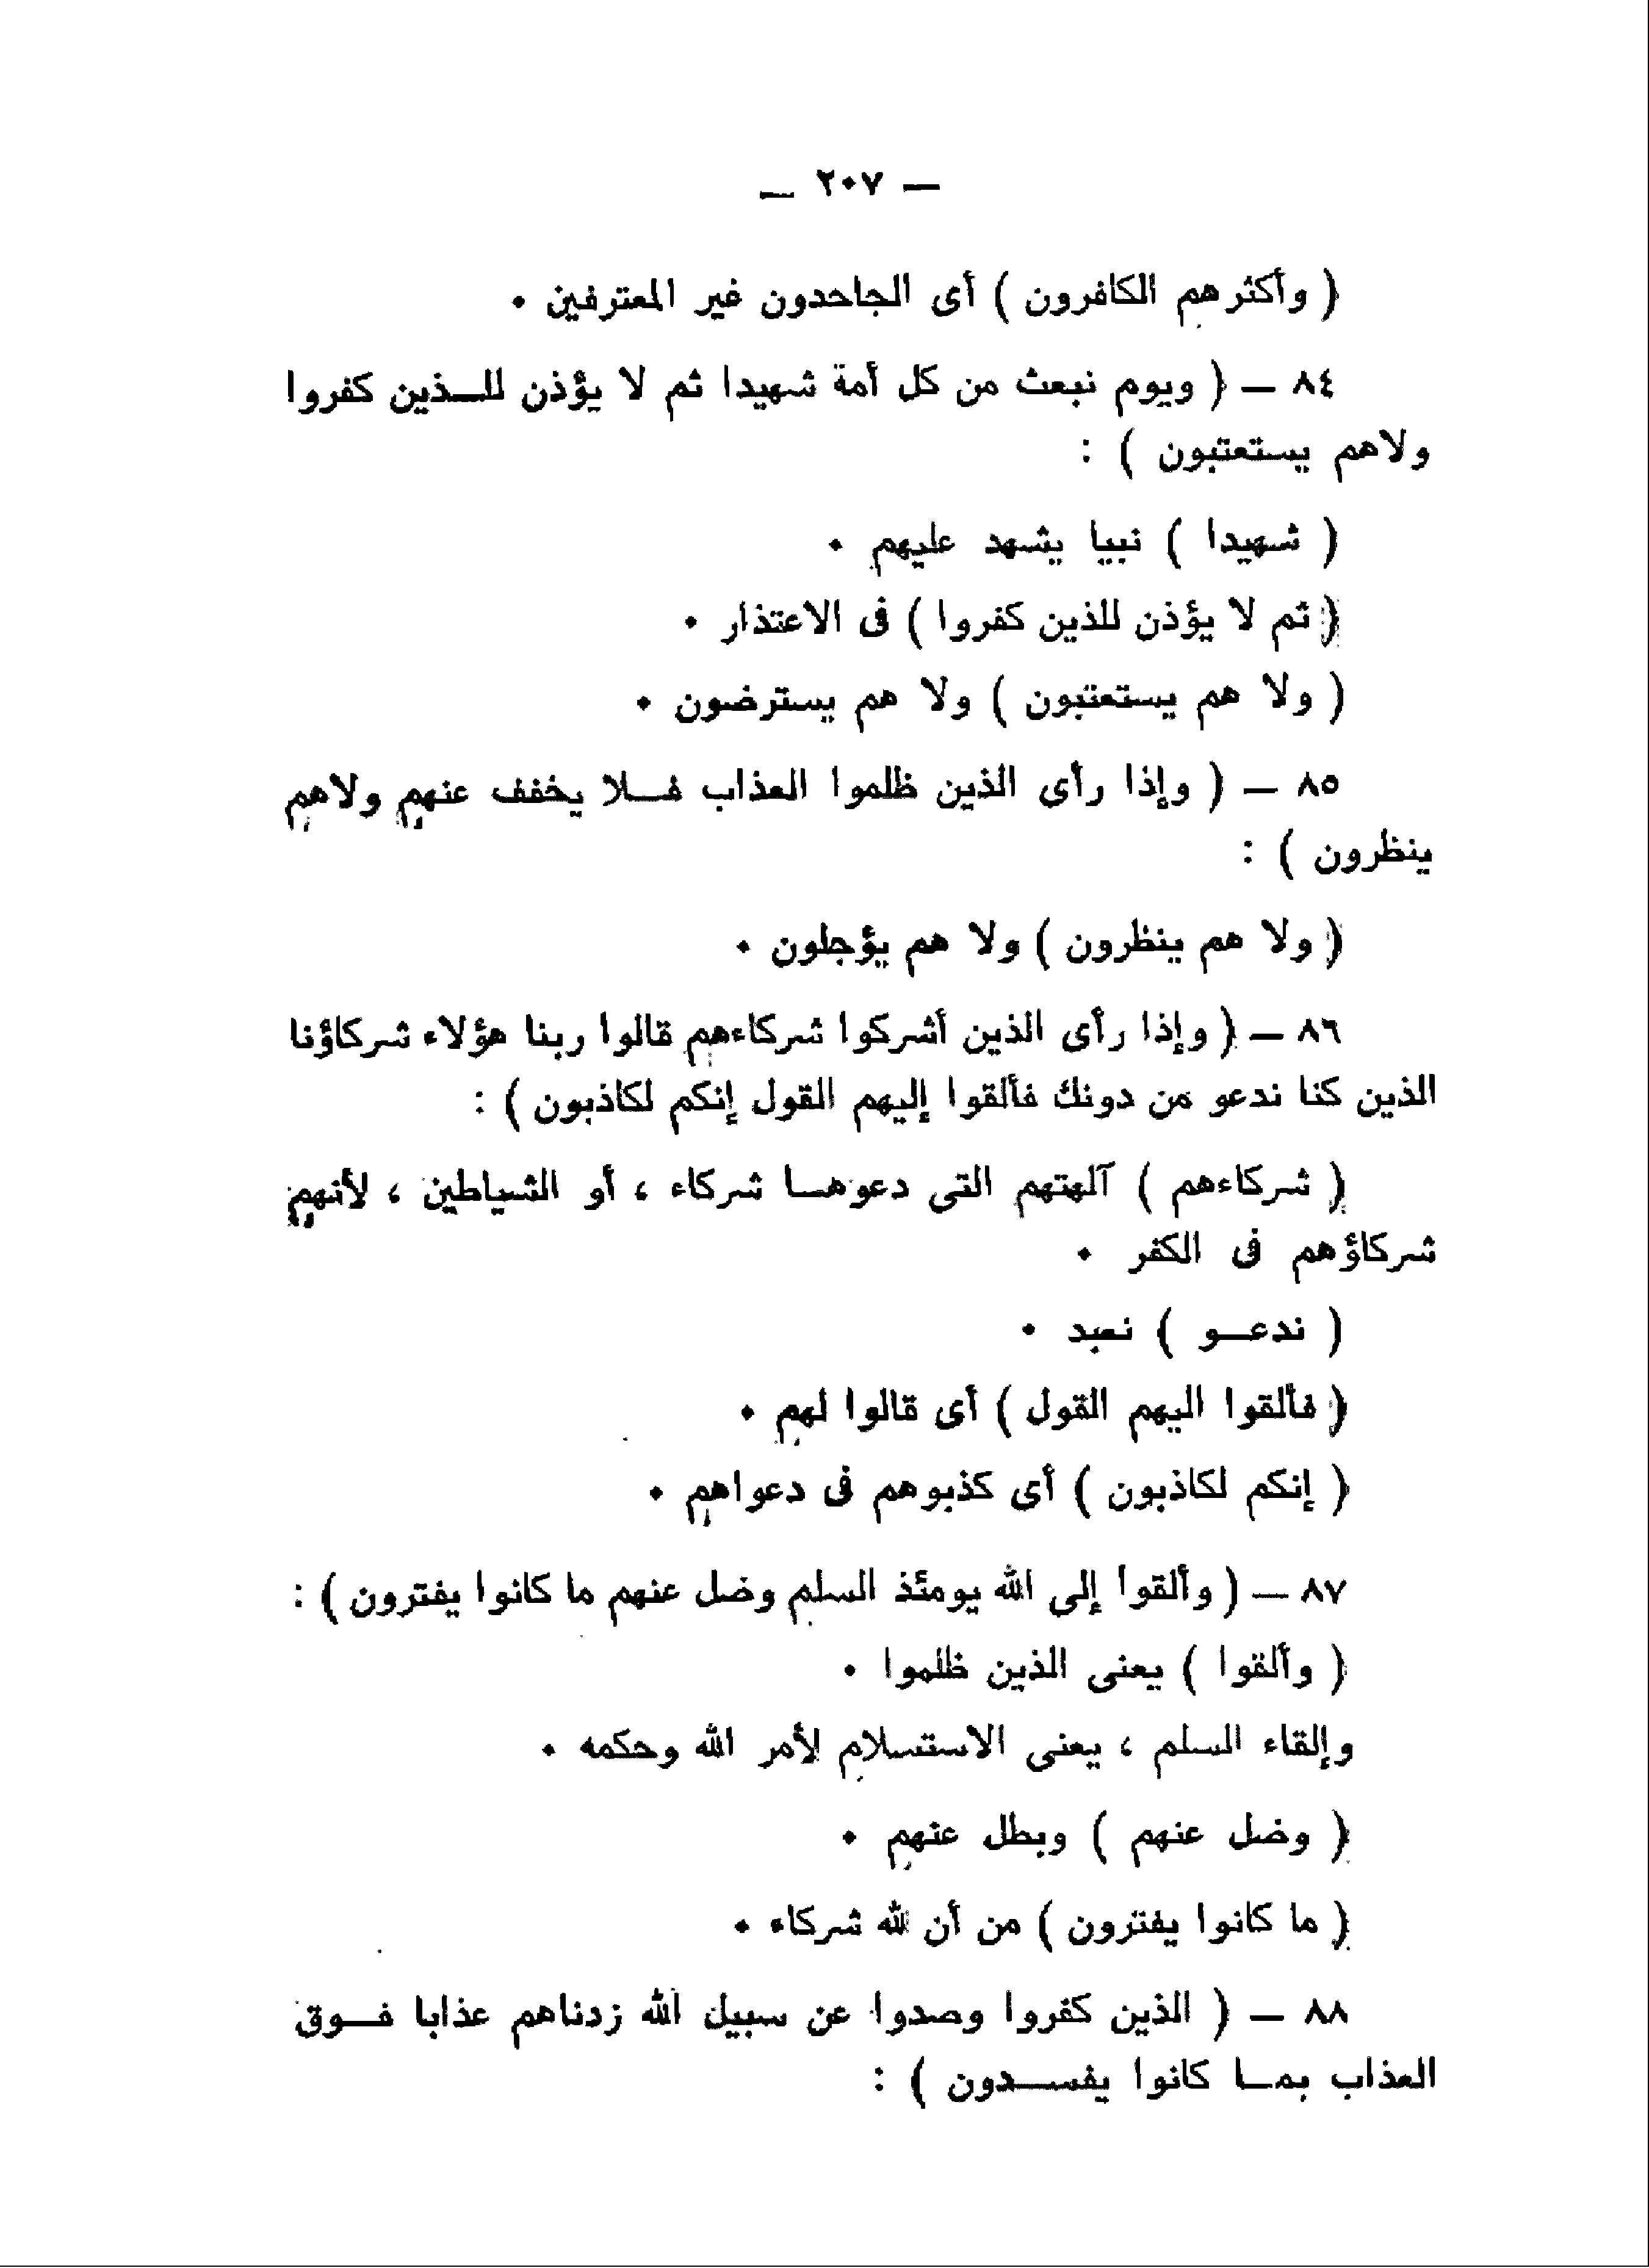 — ٢٠٧ —
( وأكثرهم الكافرون ) أى الجاحدون غير المعترفين ٠
٨٤ — ( ويوم نبعث من كل أمة شهيدا ثم لا يؤذن للـذين كفروا
ولاهم يستعتبون ) :
( شهيدا ) نبيا يشهد عليهم ٠
( ثم لا يؤذن للذين كفروا ) فى الاعتذار ٠
( ولا هم يستعتبون ) ولا هم يسترضون ٠
٨٥ — ( وإذا رأى الذين ظلموا العذاب فـلا يخفف عنهم ولاهم
ينظرون ) :
( ولا هم ينظرون ) ولا هم يؤجلون ٠
٨٦ — ( وإذا رأى الذين أشركوا شركاءهم قالوا ربنا هؤلاء شركاؤنا
الذين كنا ندعو من دونك فألقوا إليهم القول إنكم لكاذبون ) :
( شركاءهم ) آلهتهم التى دعوهـا شركاء ، أو الشياطين ، لأنهم
شركاؤهم فى الكفر ٠
( ندعـو ) نعبد ٠
( فألقوا اليهم القول ) أى قالوا لهم ٠
( إنكم لكاذبون ) أى كذبوهم فى دعواهم ٠
٨٧ — ( وألقوا إلى الله يومئذ السلم وضل عنهم ما كانوا يفترون ) :
( وألقوا ) يعنى الذين ظلموا ٠
وإلقاء السلم ، يعنى الاستسلام لأمر الله وحكمه ٠
( وضل عنهم ) وبطل عنهم ٠
( ما كانوا يفترون ) من أن لله شركاء ٠
٨٨ — ( الذين كفروا وصدوا عن سبيل الله زدناهم عذابا فـوق
العذاب بمـا كانوا يفسـدون ) :